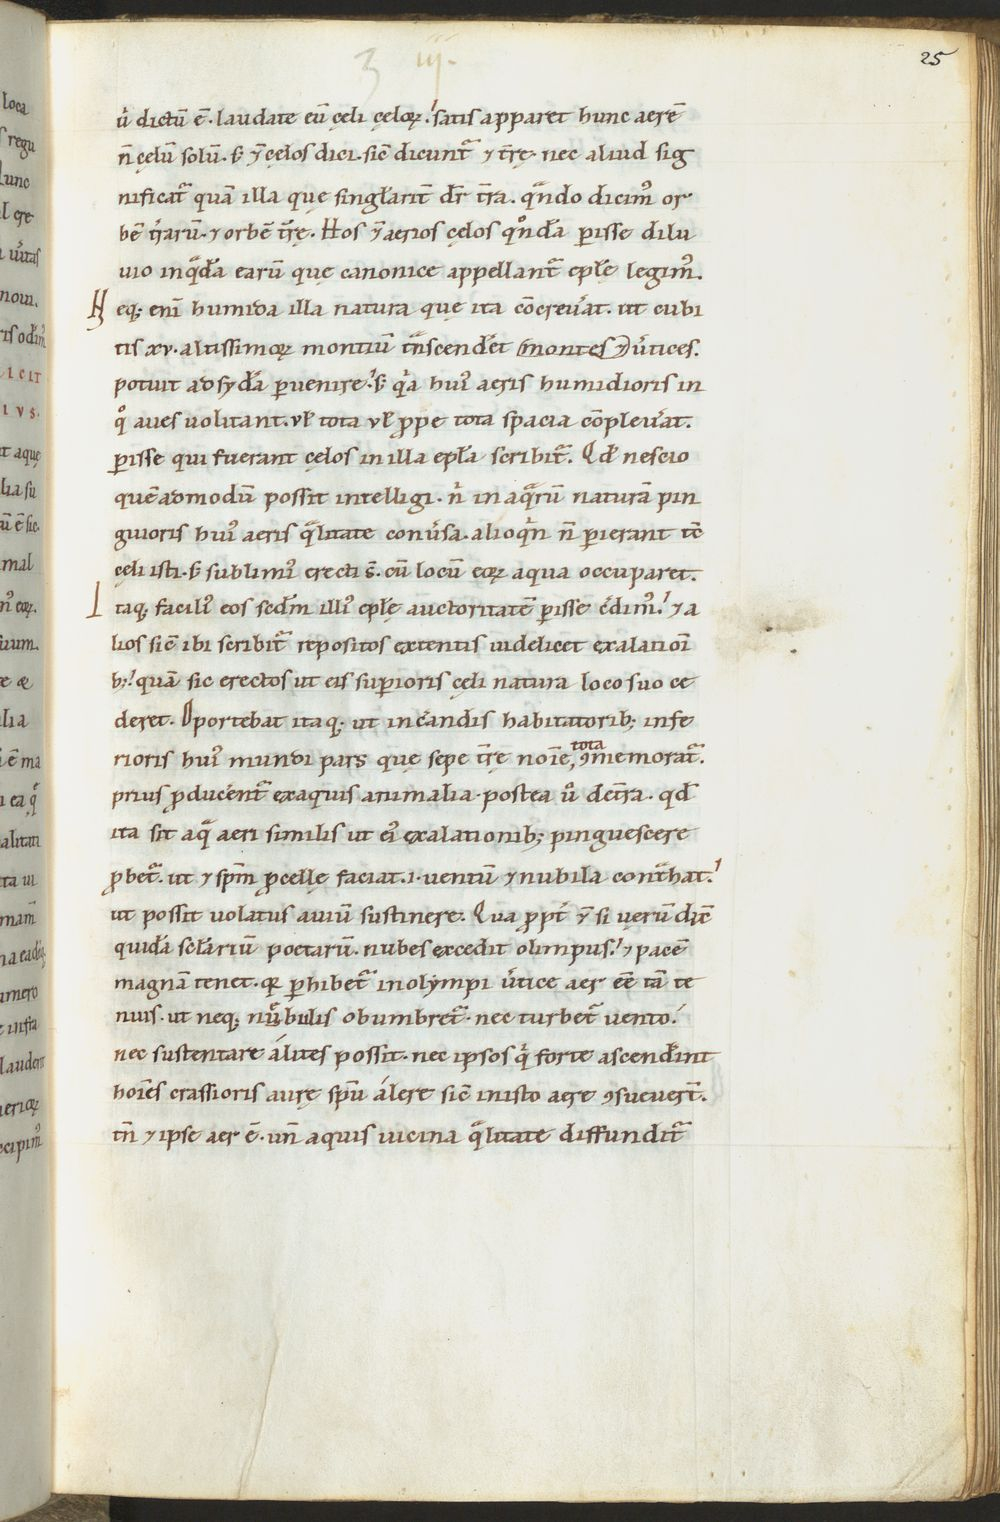 3 iij.
25
ů dictū ē. laudate eū cęli cęloꝝ. satis apparet hunc aerē
n̄ cęlū solū. s; ⁊ cęlos dici. sic̄ dicunt᷑ ⁊ t̄rę. nec aliud sig
nificat᷑ quā illa que singl̄arit̄ dr̄ t̄ra. qͣndo dicimꝰ or
bē t̄rarū. ⁊ orbē t̄rę. Hos ⁊ aerios cęlos qͦndā ꝑisse dilu
uio in qͣdā earū que canonice appellant᷑ epl̄ę legimꝰ.
Neq; eni humida illa natura que ita cōcreu̓at. ut cubi
tis xv. altissimoꝝ montiū tͣnscendēt montes ⁊ u̓tices.
potuit ad syd̓a ꝑuenire. s; qͥa huiꝰ aeris humidioris in
qͦ aues uolitant. ul̄ tota ul̄ ꝓpe tota spacia cōpleu̓at.
ꝑisse qui fuerant cęlos in illa epl̄a scribit᷑. Qd̄ nescio
quēadmodū possit intelligi. nͥ in aqͣrū naturā pin
guioris huiꝰ aeris qͣlitate conu̓sa. alioqͥn n̄ ꝑierant tc̄
cęli isti. s; sublimiꝰ erecti s̄. cū locū eoꝝ aqua occuparet.
Itaq; faciliꝰ eos scd̄m illiꝰ epl̄ę auctoritatē ꝑisse c̓dimꝰ. ⁊ a
lios sic̄ ibi scribit᷑ repositos extentis uidelicet exalationi
b;. quā sic erectos ut eis suꝑioris cęli natura loco suo ce
deret. Oportebat itaq; ut in c̓andis habitatorib; infe
rioris huiꝰ mundi pars que sepe t̄rę noīe, tota ꝯmemorat᷑.
prius ꝓducēnt᷑ ex aquis animalia. postea u̓ de t̄ra. qd̄
ita sit aqͣ aeri similis ut eiꝰ exalationib; pinguescere
ꝓbet᷑. ut ⁊ sp̄m ꝓcellę faciat. i. uentū ⁊ nubila contͣhat.
ut possit uolatus auiū sustinere. Qua ꝓpt̄ ⁊ si uerū dic̄
quidā sclariū poetarū. nubes excedit olimpus. ⁊ pacē
magnā tenet. qꝛ ꝑhibet᷑ in olympi u̓tice aer eē tā te
nuis. ut neq; nubilis obumbret᷑. nec turbet᷑ uento.
nec sustentare alites possit. nec ipsos qͥ forte ascend̓int
hoīes crassioris aurę spū alere sic̄ in isto aere ꝯsueuert̄.
tn̄ ⁊ ipse aer ē. un̄ aquis uicina qͣlitate diffundit᷑